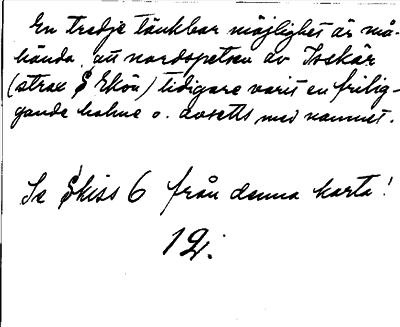 En tredje tänkbar möjlighet är må-
hända, att nordspetsen av Iskär
(strax S Ekön) tidigare varit en frilig-
gande holme o. avsetts med namnet.
Se Skiss 6 från denna karta!
12.